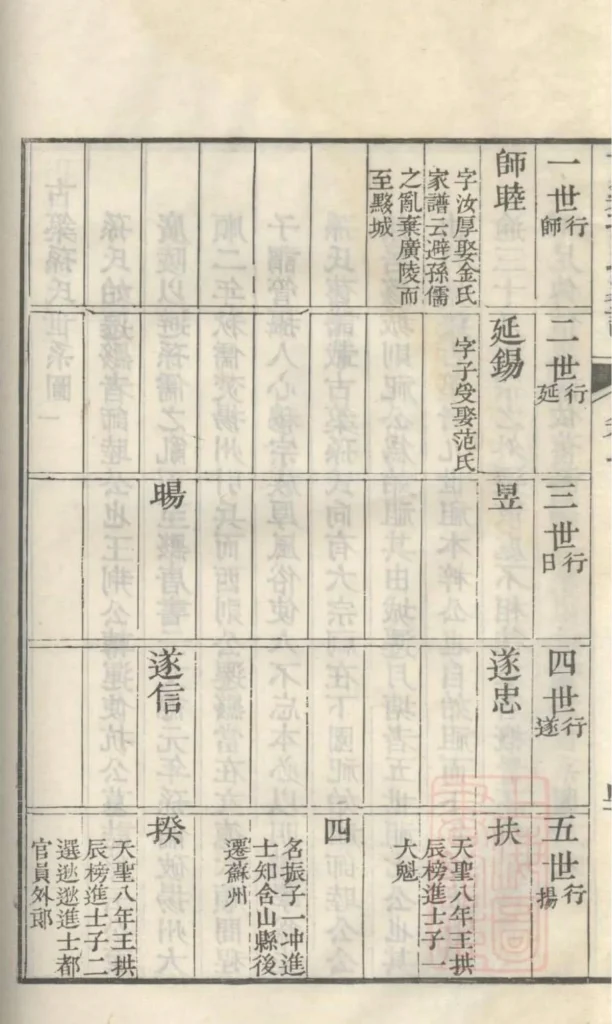 一世行師
師睦
字汝厚娶金氏
家譜云避孫儒
之亂棄廣陵而
至黟城
二世行延
延錫
字子受娶范氏
三世行日
昱
暘
四世行遂
遂忠
遂信
五世行揚
扶
天聖八年王拱
辰榜進士子一
大魁
四
名振子一冲進
士知含山縣後
遷蘇州
揆
天聖八年王拱
辰榜進士子二
選逖逖進士都
官員外郎